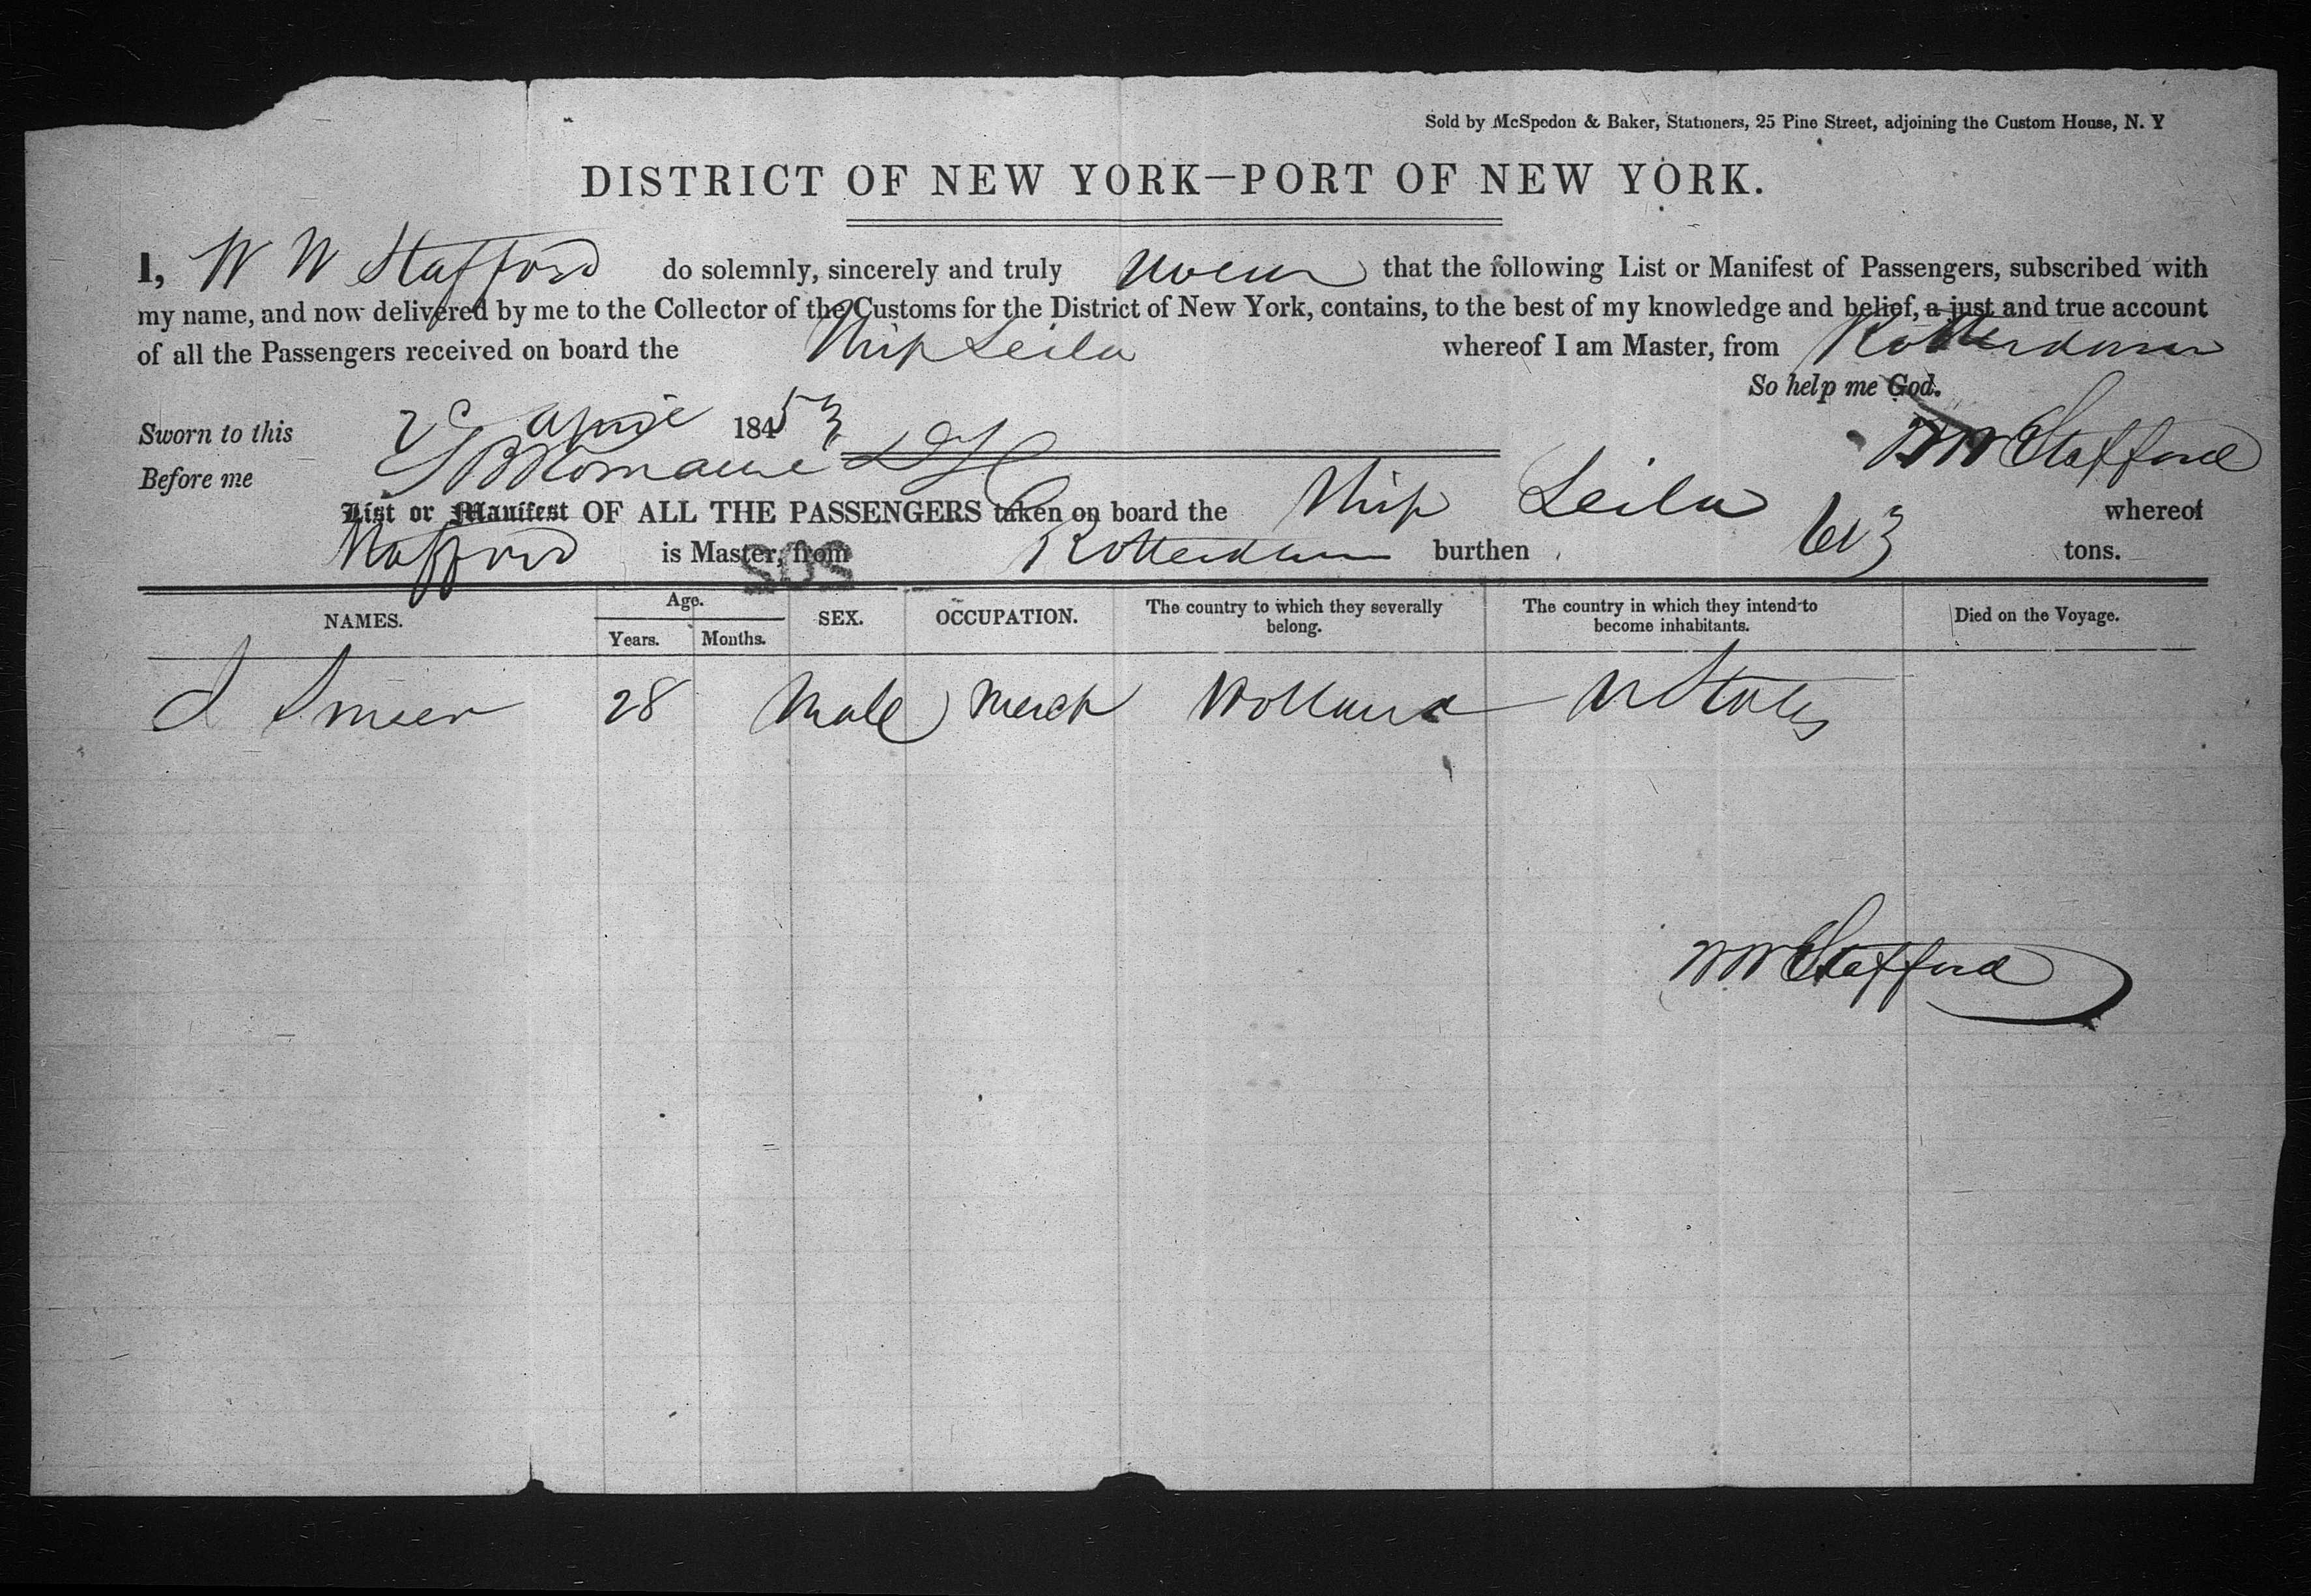 Sold by McSpedon & Baker, Stationers, 25 Pine Street, adjoining the Custom House, N. Y
DISTRICT OF NEW YORK—PORT OF NEW YORK.
I, W W Stafford do solemnly, sincerely and truly swear that the following List or Manifest of Passengers, subscribed with
my name, and now delivered by me to the Collector of the Customs for the District of New York, contains, to the best of my knowledge and belief, a just and true account
of all the Passengers received on board the Ship Leila whereof I am Master, from Rotterdam
So help me God.
Sworn to this April 18453
W W Stafford
Before me
List or Manifest OF ALL THE PASSENGERS taken on board the Ship Leila whereof
Stafford is Master, from Rotterdam burthen tons.
NAMES. Age. Years. Months. SEX. OCCUPATION. The country to which they severally belong. The country in which they intend to become inhabitants. Died on the Voyage.
28 Male Merch Holland U States
W W Stafford